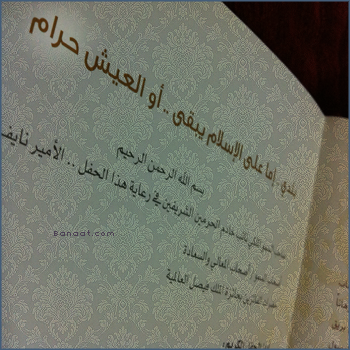 بلادي .. إما على الإسلام يبقى .. أو العيش حرام
بسم الله الرحمن الرحيم
نائب خادم الحرمين الشريفين في رعاية هذا الحفل .. الأمير نايف
أصحاب السمو أصحاب المعالي والسعادة
الفائزين بجائزة الملك فيصل العالمية
الحفل الكريم:
Banaat.com